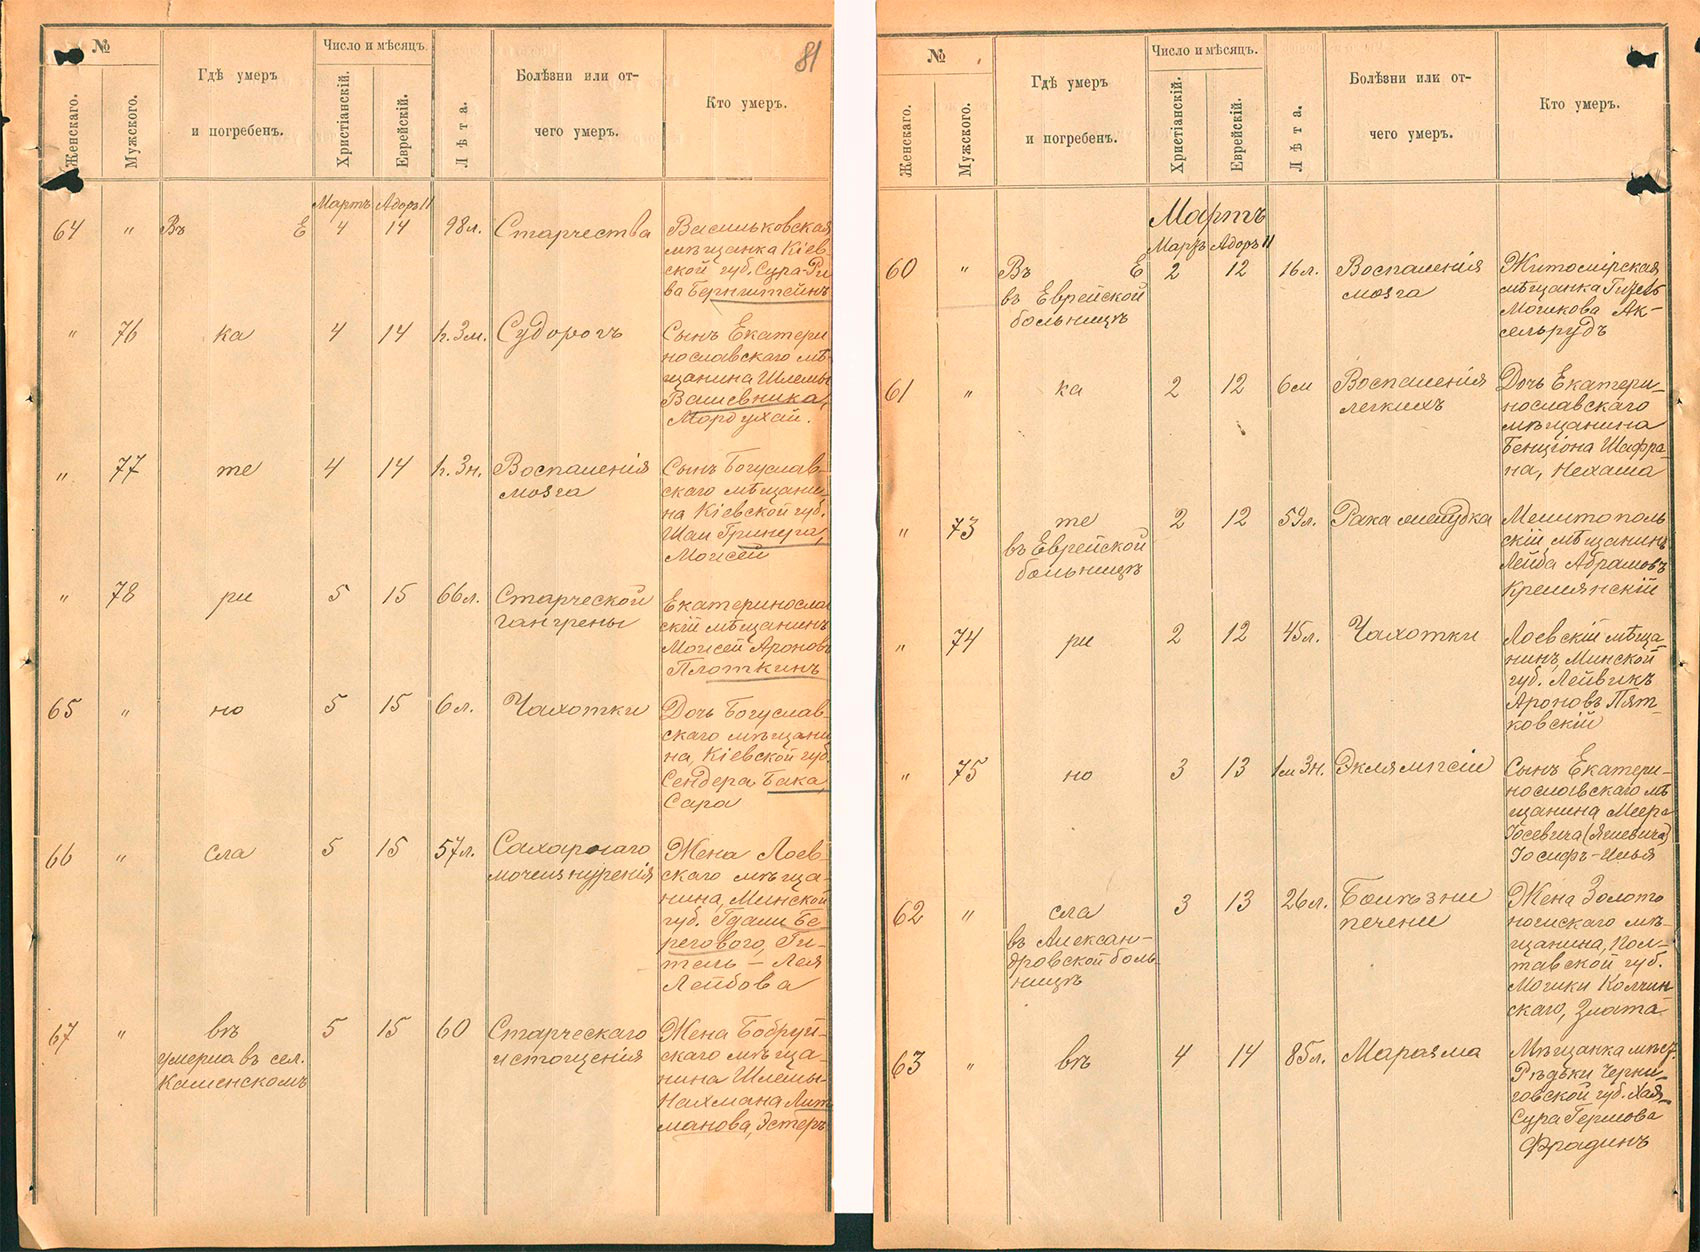 81
№
Женскаго.
Мужского.
Гдѣ умеръ
и погребенъ.
Число и мѣсяцъ.
Христіанскій.
Еврейскій.
Лѣта.
Болѣзни или от-
чего умеръ.
Кто умеръ.
Мартъ Адоръ II
64 " Въ Е 4 14 98л. Старчества
Васильковская
мѣщанка Кіев-
ской губ. Сура-Ри
ва Бернштейнъ
" 76 ка 4 14 1г.3м. Судорогъ
Сынъ Екатери
нославскаго мѣ-
щанина Шлемы
Вашевника,
Мордухай.
" 77 те 4 14 1г.3н. Воспаленія
мозга
Сынъ Богуслав-
скаго мѣщани
на Кіевской губ.
Шаи
Моисей
" 78 ри 5 15 66л. Старческой
гангрены
Екатеринослав
скій мѣщанинъ
Моисей Ароновъ
Плоткинъ
65 " но 5 15 6л. Чахотки
Дочь Богуслав-
скаго мѣщани
на, Кіевской губ.
Сендера Бака,
Сара
66 " сла 5 15 57л. Сахарнаго
мочеизнуренія
Жена Лоев-
скаго мѣща-
нина, Минской
губ. Гдали Бе-
регового, Ги-
тель – Лея
Лейбова
67 " въ 5 15 60 Старческаго
истощенія
умерла въ сел.
Каменскомъ
Жена Бобруй-
скаго мѣща-
нина Шлемы-
Нахмана Лит
манова, Эстеръ
№
Женскаго.
Мужского.
Гдѣ умеръ
и погребенъ.
Число и мѣсяцъ.
Христіанскій.
Еврейскій.
Лѣта.
Болѣзни или от-
чего умеръ.
Кто умеръ.
Мартъ
Мартъ Адоръ II
60 " Въ Е 2 12 16л. Воспаленія
мозга
въ Еврейской
больницѣ
Житомірская
мѣщанка
Мошкова Ак-
сельрудъ
61 " ка 2 12 6м Воспаленія
легкихъ
Дочь Екатери-
нославскаго
мѣщанина
Бенціона Шафра-
на, Нехама
" 73 те 2 12 59л. Рака желудка
въ Еврейской
больницѣ
Мелитополь
скій мѣщанинъ
Лейба Абрамовъ
Кремянскій
" 74 ри 2 12 45л. Чахотки
Лоевскій мѣща-
нинъ, Минской
губ. Лейвикъ
Ароновъ Пят-
ковскій
" 75 но 3 13 1м 3н. Эклямпсіи
Сынъ Екатери-
нославскаго мѣ
щанина Меера
Іосевича (Яшевича)
Іосифъ-Илья
62 " сла 3 13 26л. Болѣзни
печени
въ Алексан-
дровской боль
ницѣ
Жена Золото
ношскаго мѣ-
щанина, Пол-
тавской губ.
Мошки Колчин-
скаго, Злата
63 " въ 4 14 85л. Маразма
Мѣщанка мѣст.
Рѣдьки Черни-
говской губ. Хая-
Сура Гершова
Фрадинъ